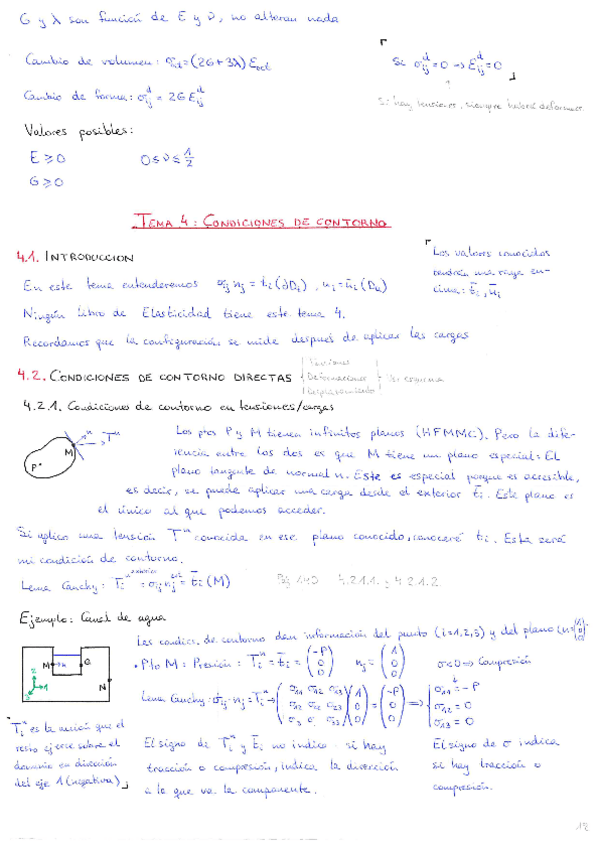 G y λ son función de E y ν, no alteran nada
Cambio de volumen: σoct = (2G+3λ) Eoct
Si σᵈij = 0 ⇒ Eᵈij = 0
Cambio de forma: σᵈij = 2G Eᵈij
Si hay tensiones, siempre habrá deformac.
Valores posibles:
E ⩾ 0    0 ≤ ν ≤ 1/2
G ⩾ 0
TEMA 4: CONDICIONES DE CONTORNO
4.1. INTRODUCCION
En este tema entenderemos σij nj = t̄i (∂Dt), ui = ūi (Du)
Ningún libro de Elasticidad tiene este tema 4.
Recordamos que la configuración se mide después de aplicar las cargas
Los valores conocidos
tendrán una raya en-
cima: t̄i, ūi
4.2. CONDICIONES DE CONTORNO DIRECTAS
Tensiones
Deformaciones
Desplazamiento
Ver esquema
4.2.1. Condiciones de contorno en tensiones/cargas
M
n
Tⁿ
P
Los ptos P y M tienen infinitos planos (HFMMC). Pero la dife-
rencia entre los dos es que M tiene un plano especial: El
plano tangente de normal n. Este es especial porque es accesible,
es decir, se puede aplicar una carga desde el exterior t̄i. Este plano es
el único al que podemos acceder.
Si aplico una tensión Tⁿ conocida en ese plano conocido, conoceré ti. Esta será
mi condición de contorno.
Lema Cauchy: Tiⁿ = σij nj = t̄i (M)    Pg 140    4.2.1.1. y 4.2.1.2.
Ejemplo: Canal de agua
Las condics. de contorno dan información del punto (i=1,2,3) y del plano (n = (1 0 0))
M
Q
N
2
1
3
• Pto M: Presión: Tiⁿ = t̄i = (-P 0 0)    nj = (1 0 0)    σ<0 ⇒ Compresión
Lema Cauchy: σij·nj = Tiⁿ → (σ11 σ12 σ13 / σ12 σ22 σ23 / σ13 σ23 σ33) (1 0 0) = (-P 0 0) ⇒ { σ11 = -P
σ12 = 0
σ13 = 0
Tiⁿ es la acción que el
resto ejerce sobre el
dominio en dirección
del eje 1 (negativa)
El signo de Tiⁿ y t̄i no indica si hay
tracción o compresión, indica la dirección
a la que va la componente.
El signo de σ indica
si hay tracción o
compresión.